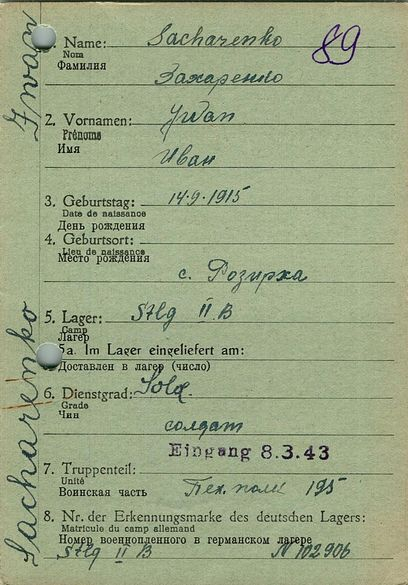 89
1. Name: Sacharenko
Nom
Фамилия
Захаренко
2. Vornamen: Iwan
Prénoms
Имя
Иван
3. Geburtstag: 14.9.1915
Date de naissance
День рождения
4. Geburtsort:
Lieu de naissance
Место рождения
с. Розирха
5. Lager: Stlg II B
Camp
Лагерь
5a. Im Lager eingeliefert am:
Доставлен в лагерь (число)
6. Dienstgrad: Sold.
Grade
Чин
солдат
Eingang 8.3.43
7. Truppenteil:
Unité
Воинская часть Пех. полк 195
8. Nr. der Erkennungsmarke des deutschen Lagers:
Matricule du camp allemand
Номер военнопленного в германском лагере
Stlg II B N 102906
Sacharenko Iwan